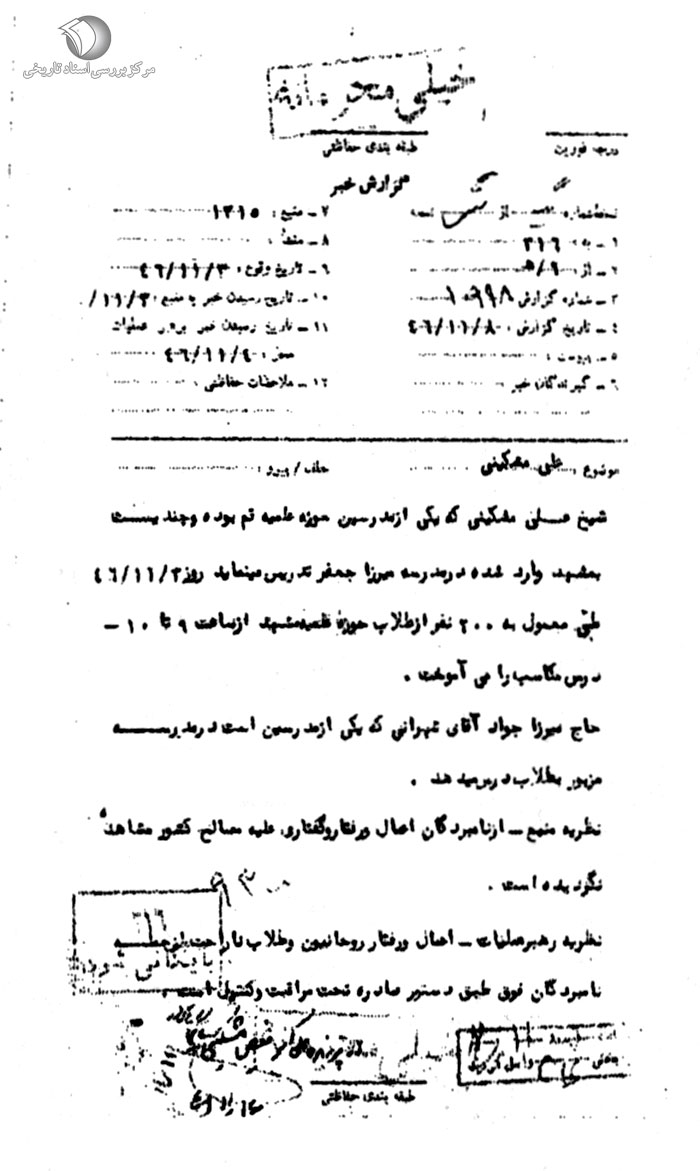 مرکز بررسی اسناد تاریخی
خیلی محرمانه
درجه فوریت
طبقه بندی حفاظتی
گزارش خبر
نسخه شماره از نسخه
۷ – منبع : ۱۳۱۵
۱ – به : ۳۱۶
۸ – منشأ :
۲ – از : ۹/ه
۹ – تاریخ وقوع : ۴۶/۱۱/۳
۳ – شماره گزارش ۱۰۶۹۸
۱۰ – تاریخ رسیدن خبر به منبع : ۱۱/۳/
۴ – تاریخ گزارش : ۴۶/۱۱/۸
۱۱ – تاریخ رسیدن خبر برهبر عملیات
۵ – پیوست :
۴۶/۱۱/۴
۶ – گیرندگان خبر
۱۲ – ملاحظات حفاظتی :
موضوع : علی مشکینی
عطف / پیرو :
شیخ علی مشکینی که یکی ازمدرسین حوزه علمیه قم بوده وچندیست
بمشهد وارد شده درمدرسه میرزا جعفر تدریس مینماید روز ۴۶/۱۱/۳
طبق معمول به ۲۰۰ نفر ازطلاب حوزه علمیه مشهد ازساعت ۹ تا ۱۰ –
درس مکاسب را می آموخت .
حاج میرزا جواد آقای تهرانی که یکی ازمدرسین است درمدرسه
مزبور بطلاب درس میدهد .
نظریه منبع – ازنامبردگان اعمال ورفتاروگفتاری علیه مصالح کشور مشاهده
نگردیده است .
۳۱۶
بایگانی شود
نظریه رهبرعملیات – اعمال ورفتار روحانیون وطلاب ناراحت ازجمله
نامبردگان فوق طبق دستور صادره تحت مراقبت وکنترل است .
طبقه بندی حفاظتی